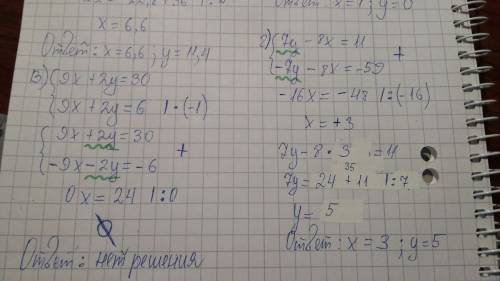 x = 6,6
Ответ: x=6,6; y=11,4
в) {9x+2y=30
{9x+2y=6 |·(-1)
{9x+2y=30
{-9x-2y=-6 +
0x = 24 |:0
∅
Ответ: нет решения
Ответ: x=1; y=0
г) {7y-8x=11
{-7y-8x=-59 +
-16x=-48 |:(-16)
x=+3
7y-8·3=11
35
7y=24+11 |:7
y= 5
Ответ: x=3; y=5